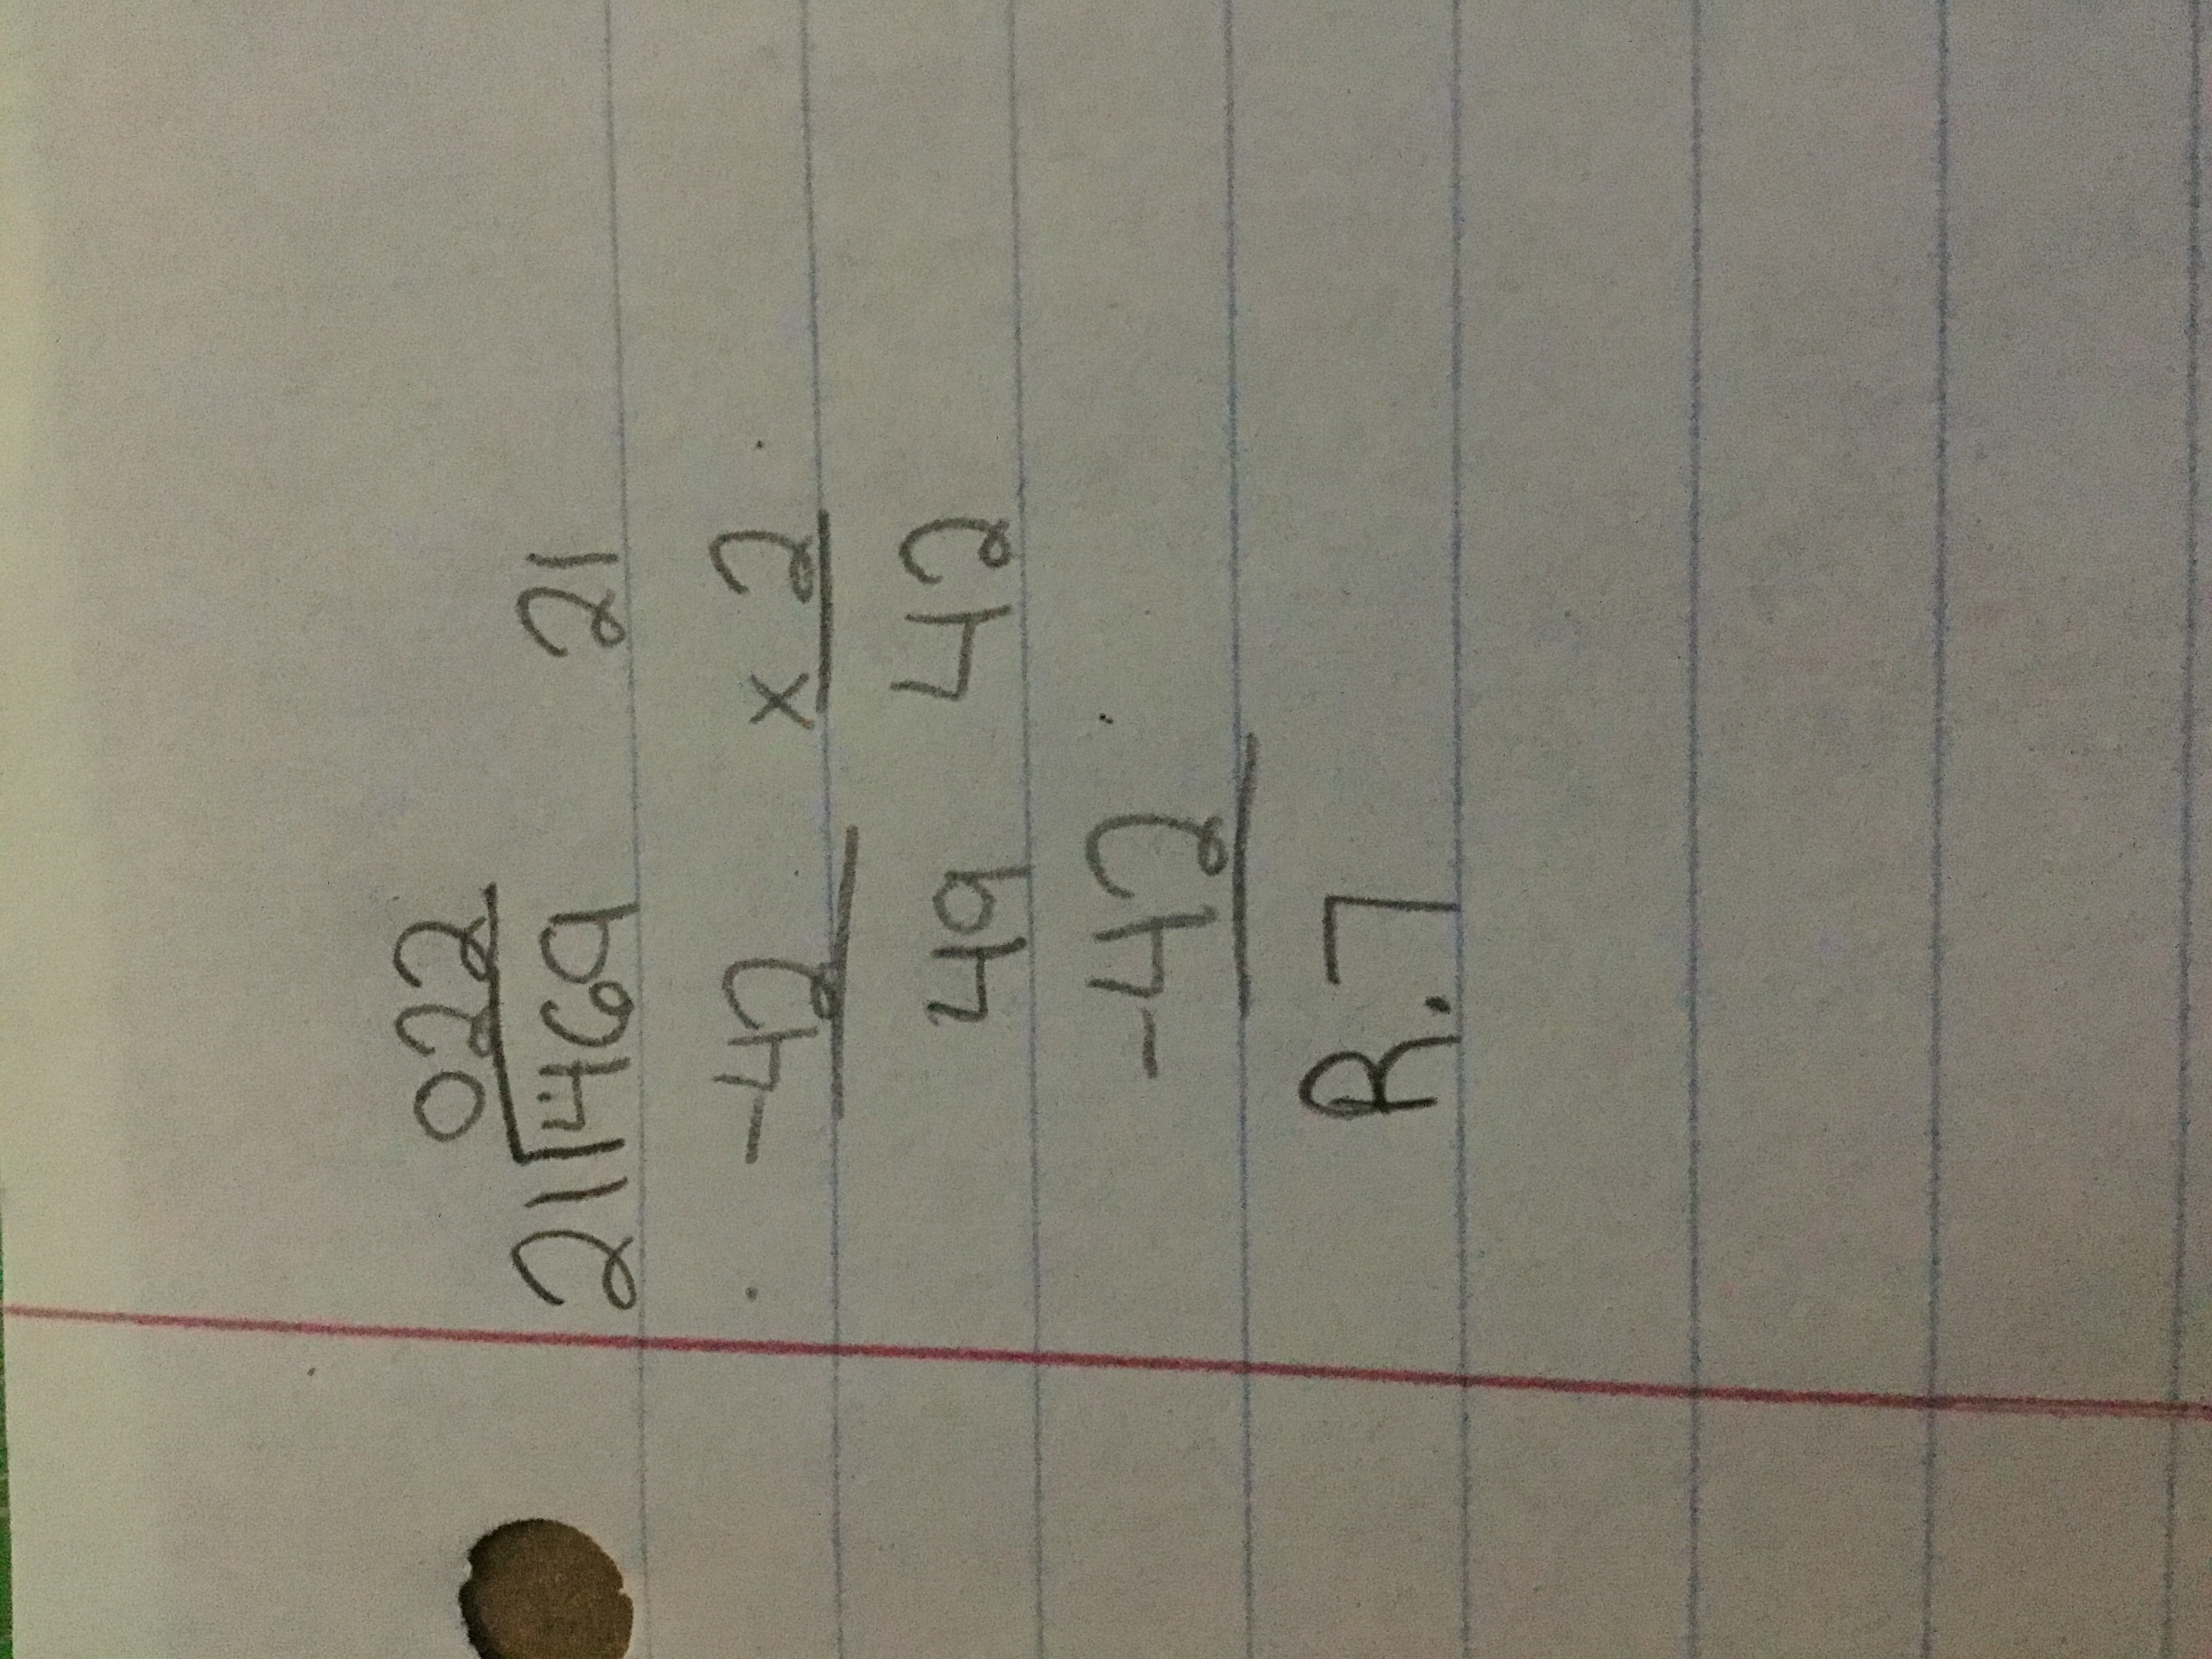 022
21|469 21
-42 x2
49 42
-42
R.7